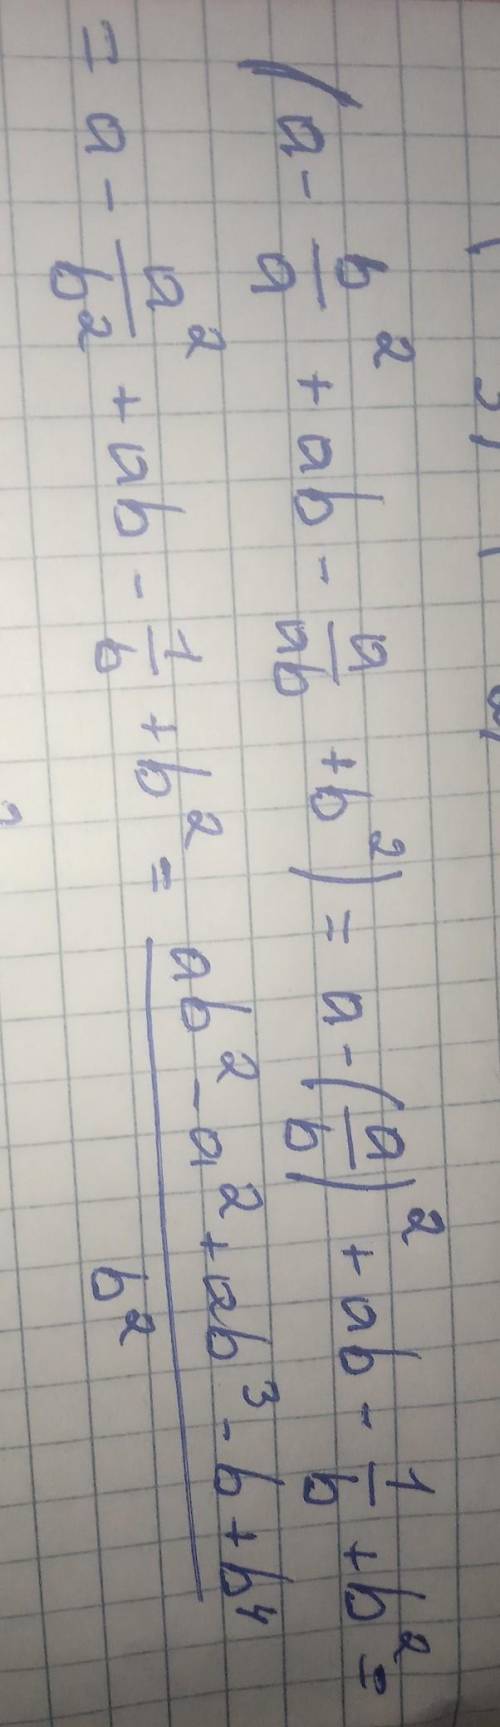 (a - b/a ² + ab - a/ab + b²) = a - (a/b)² + ab - 1/b + b² =
= a - a²/b² + ab - 1/b + b² = (ab² - a² + ab³ - b + b⁴)/b²